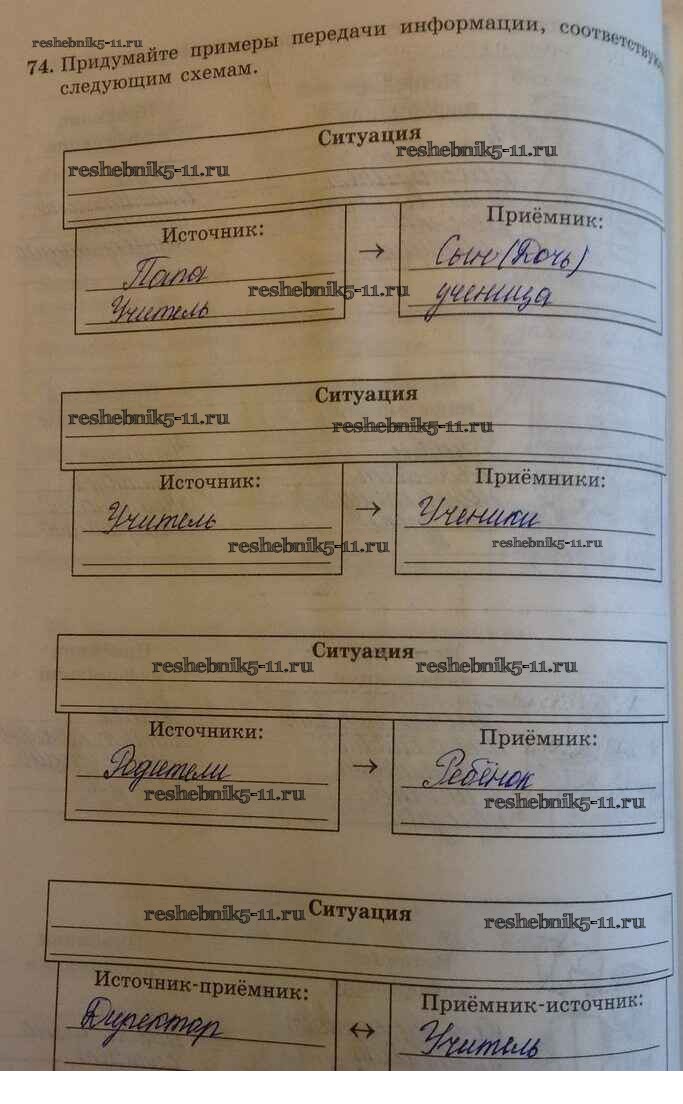 reshebnik5-11.ru
74. Придумайте примеры передачи информации, соответствую
следующим схемам.
Ситуация
reshebnik5-11.ru
reshebnik5-11.ru
Источник:
Приёмник:
Папа
→
Сын (Дочь)
Учитель
reshebnik5-11.ru
ученица
Ситуация
reshebnik5-11.ru
reshebnik5-11.ru
Источник:
Приёмники:
Учитель
→
Ученики
reshebnik5-11.ru
reshebnik5-11.ru
Ситуация
reshebnik5-11.ru
reshebnik5-11.ru
Источники:
Приёмник:
Родители
→
Ребёнок
reshebnik5-11.ru
reshebnik5-11.ru
Ситуация
reshebnik5-11.ru
reshebnik5-11.ru
Источник-приёмник:
Приёмник-источник:
Директор
↔
Учитель